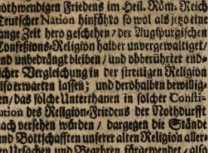 othwendigen Friedens im Heil. Röm. Reich
Teutscher Nation hinfüro so wol als jetzo eine
ange Zeit hero geschehen / der Augspurgischen
Confessions-Religion halber unvergewaltiget
nd unbedrängt bleiben / und obberührter end-
icher Vergleichung in der streitigen Religion
lso erwarten lassen; und derohalben bewillig-
en / das solche Unterthanen in solcher Consti-
ution des Religion-Friedens der Nothdurfft
ach versehen würden / dargegen die Stände
und Bottschafften unserer alten Religion aller-